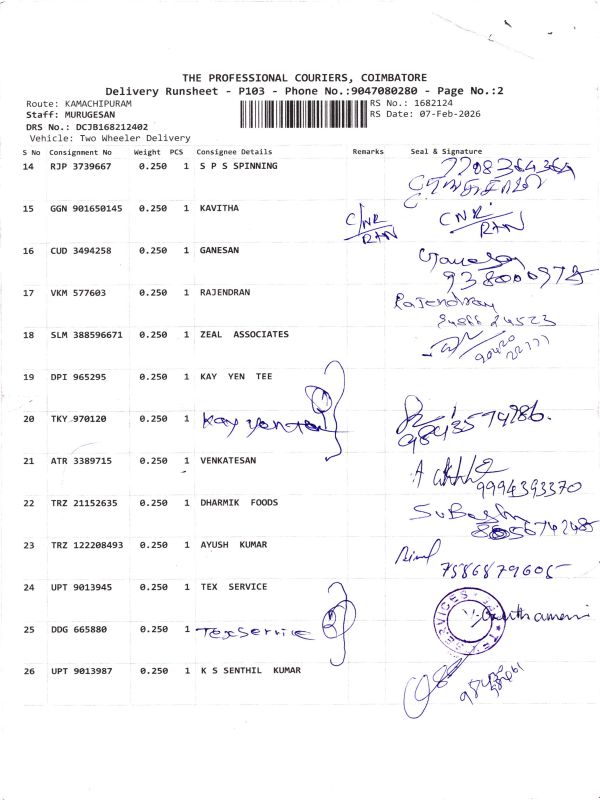 THE PROFESSIONAL COURIERS, COIMBATORE
Delivery Runsheet - P103 - Phone No.:9047080280 - Page No.:2
Route: KAMACHIPURAM
Staff: MURUGESAN
DRS No.: DCJB168212402
Vehicle: Two Wheeler Delivery
RS No.: 1682124
RS Date: 07-Feb-2026
S No Consignment No Weight PCS Consignee Details Remarks Seal & Signature
14 RJP 3739667 0.250 1 S P S SPINNING
15 GGN 901650145 0.250 1 KAVITHA C/NR RTN CNR RTN
16 CUD 3494258 0.250 1 GANESAN Ganesan
17 VKM 577603 0.250 1 RAJENDRAN Rajendran
18 SLM 388596671 0.250 1 ZEAL ASSOCIATES
19 DPI 965295 0.250 1 KAY YEN TEE
20 TKY 970120 0.250 1 Kay yen tee
21 ATR 3389715 0.250 1 VENKATESAN 9994393370
22 TRZ 21152635 0.250 1 DHARMIK FOODS
23 TRZ 122208493 0.250 1 AYUSH KUMAR
24 UPT 9013945 0.250 1 TEX SERVICE
25 DDG 665880 0.250 1 Tex Service
26 UPT 9013987 0.250 1 K S SENTHIL KUMAR